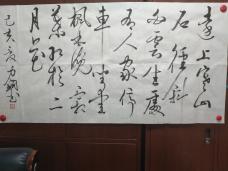 遠上寒山
石徑斜
白雲生處
有人家停
車坐愛
楓林晚霜
葉紅於二
月花
己亥夏书